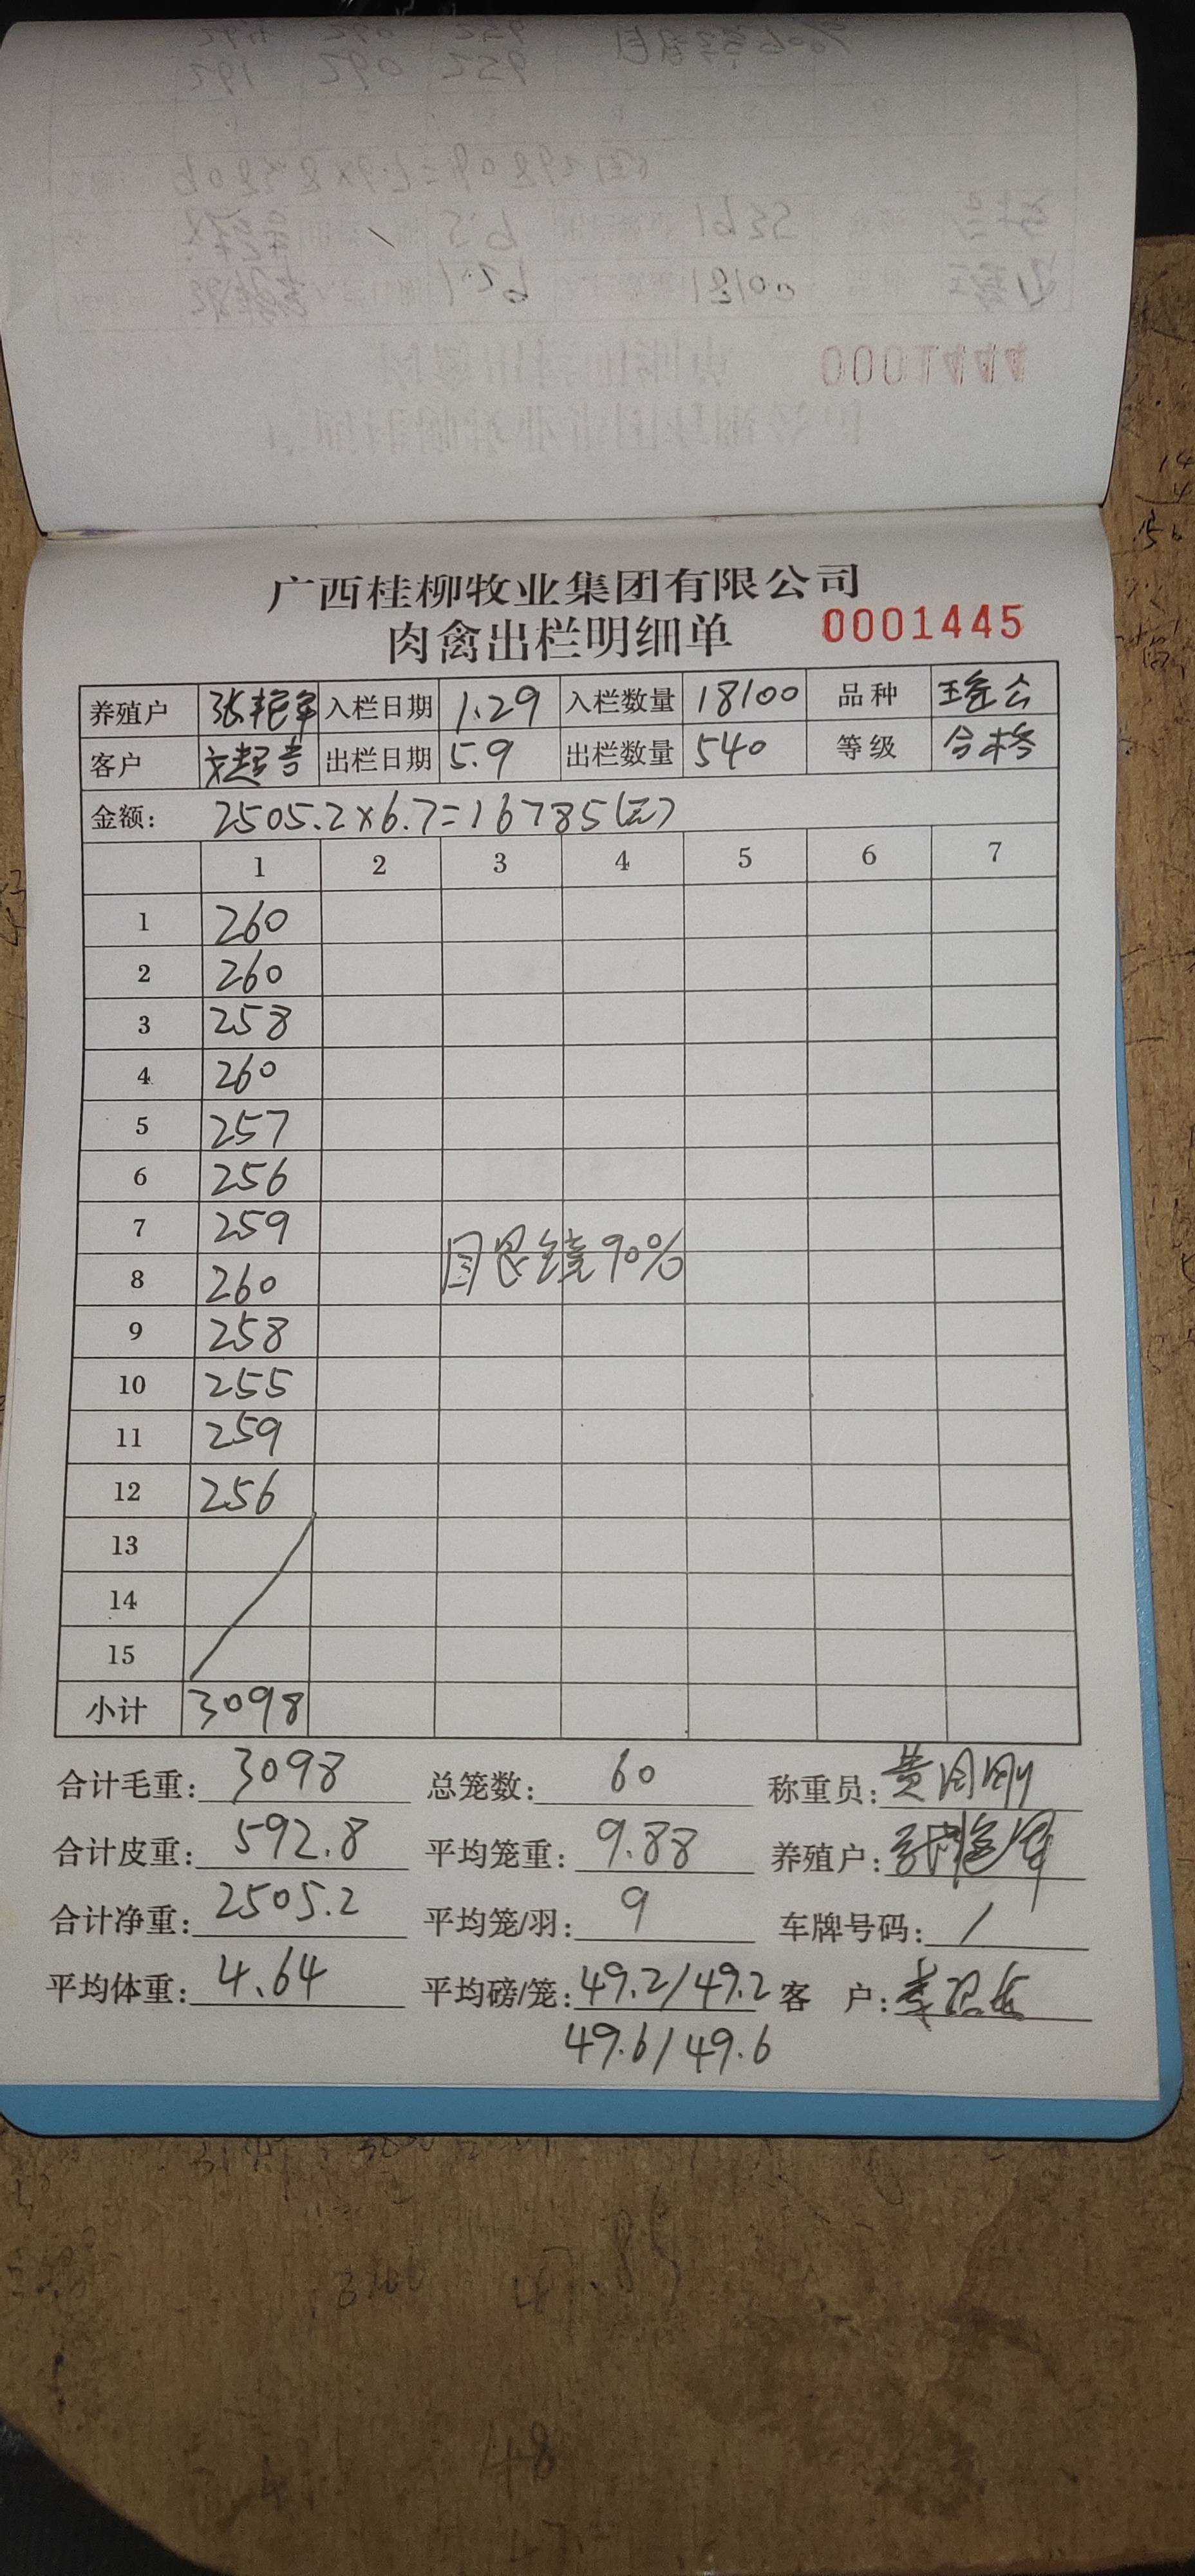 0001444
广西桂柳牧业集团有限公司
肉禽出栏明细单 0001445
养殖户 张艳军 入栏日期 1.29 入栏数量 18100 品种
客户 出栏日期 5.9 出栏数量 540 等级 合格
金额: 2505.2×6.7=16785(元)
1 2 3 4 5 6 7
1 260
2 260
3 258
4 260
5 257
6 256
7 259
眼镜90%
8 260
9 258
10 255
11 259
12 256
13
14
15
小计 3098
合计毛重: 3098 总笼数: 60 称重员: 黄刚刚
合计皮重: 592.8 平均笼重: 9.88 养殖户: 张艳军
合计净重: 2505.2 平均笼/羽: 9 车牌号码: /
平均体重: 4.64 平均磅/笼: 49.2/49.2 客 户:
49.6/49.6